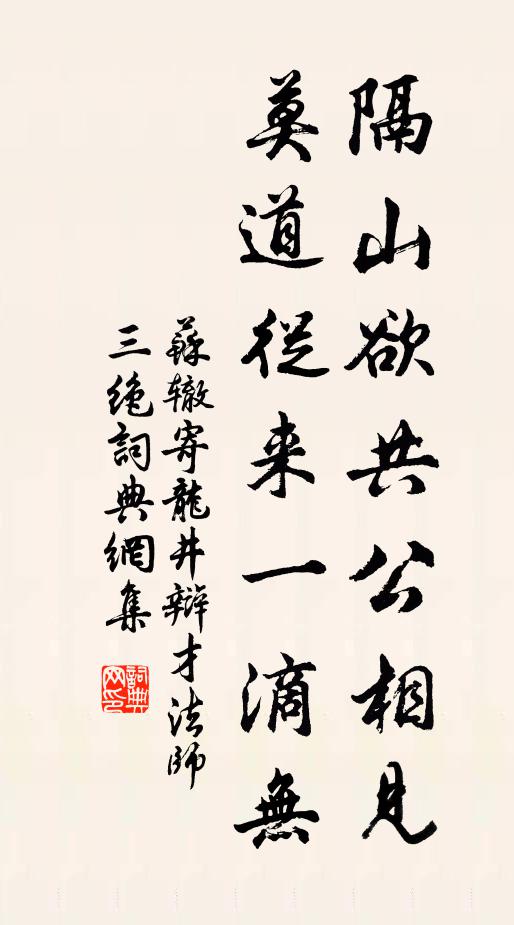 隔山欲共公相見
莫道從来一滴無
蘇辙寄龍井辯才法師
三絶詞典網集
詞典網印